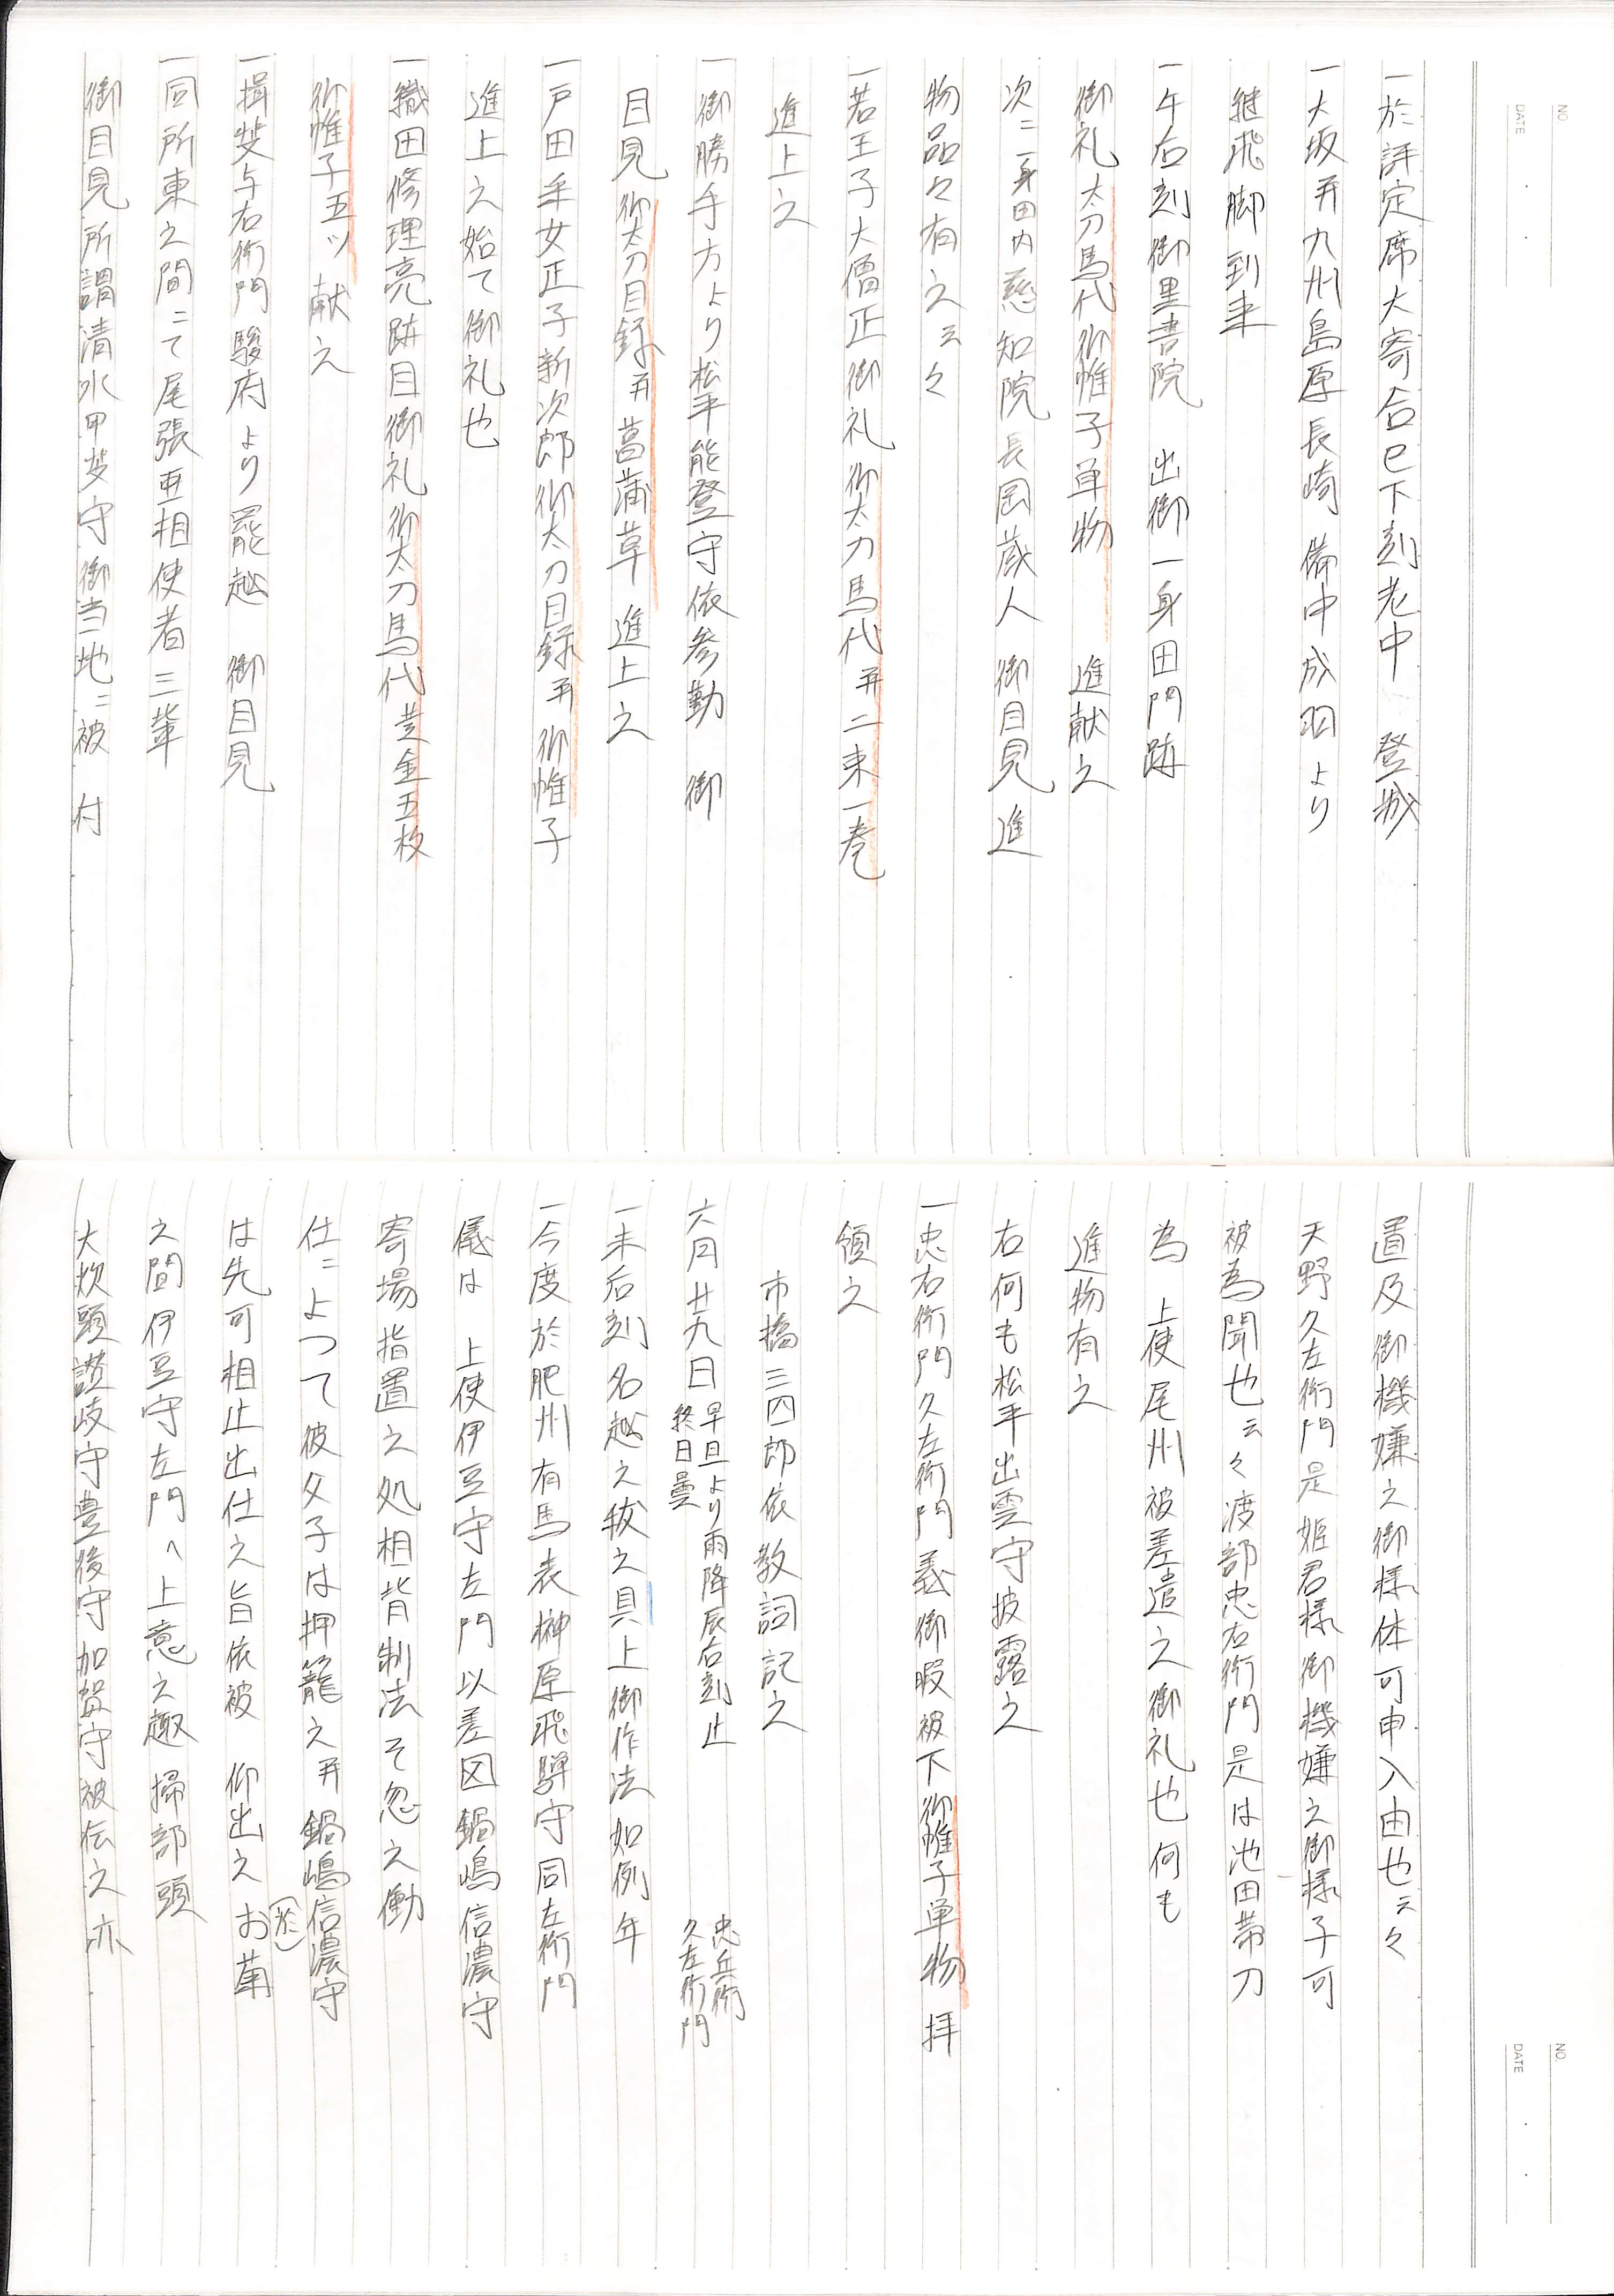 NO.
DATE
一於評定席大寄合巳下刻老中 登城
一大坂并九州島原長崎備中成羽より
継飛脚到来
一午后刻御黒書院 出御一身田門跡
御礼太刀馬代御帷子単物 進献之
次ニ一身田内慈知院長岡蔵人 御目見進
物品々有之云々
一若王子大僧正御礼御太刀馬代并二束一巻
進上之
一御勝手方より松平能登守依参勤 御
目見御太刀目録并菖蒲革 進上之
一戸田采女正子新次郎御太刀目録并御帷子
進上之始て御礼也
一織田修理亮跡目御礼御太刀馬代黄金五枚
御帷子五ツ献之
一揖斐与右衛門駿府より罷越 御目見
一同所東之間ニて尾張亜相使者三輩
御目見所謂清水甲斐守御当地ニ被 付
NO.
DATE
置及御機嫌之御様体可申入由也云々
天野久左衛門是姫君様御機嫌之御様子可
被為聞也云々渡部忠右衛門是は池田帯刀
為 上使尾州被差遣之御礼也何も
進物有之
右何も松平出雲守披露之
一忠右衛門久左衛門義御暇被下御帷子単物拝
領之
市橋三四郎依教詞記之
六月廿九日 早旦より雨降辰右刻止 終日曇 忠兵衛 久左衛門
一未后刻名越之祓之具上御作法如例年
一今度於肥州有馬表榊原飛騨守同左衛門
儀は 上使伊豆守左門以差図鍋嶋信濃守
寄場指置之処相背制法そ忽之働
仕ニよつて彼父子は押籠之并鍋嶋信濃守
は先可相止出仕之旨依被 仰出之お(於)菊
之間伊豆守左門へ上意之趣掃部頭
大炊頭讃岐守豊後守加賀守被伝之亦